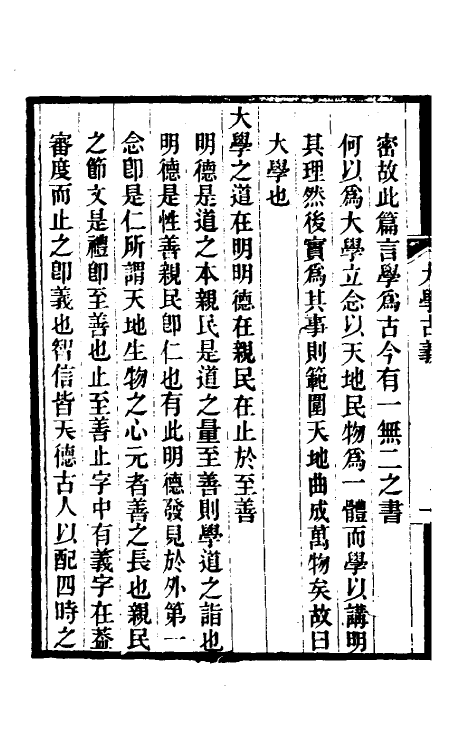 大學古義
一
密故此篇言學爲古今有一無二之書
何以爲大學立念以天地民物爲一體而學以講明
其理然後實爲其事則範圍天地曲成萬物矣故曰
大學也
大學之道在明明德在親民在止於至善
明德是道之本親民是道之量至善則學道之詣也
明德是性善親民卽仁也有此明德發見於外第一
念卽是仁所謂天地生物之心元者善之長也親民
之節文是禮卽至善也止至善止字中有義字在葢
審度而止之卽義也智信皆天德古人以配四時之